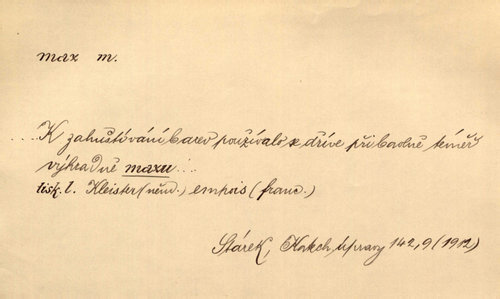 max m.
...K zahušťování barev používalo se dříve při barvě téměř
výhradně maxu...
tisk. l. Kleister (něm.) empois (franc.)
Stárek, Kol. ch. úpravy 142, 9 (1912)